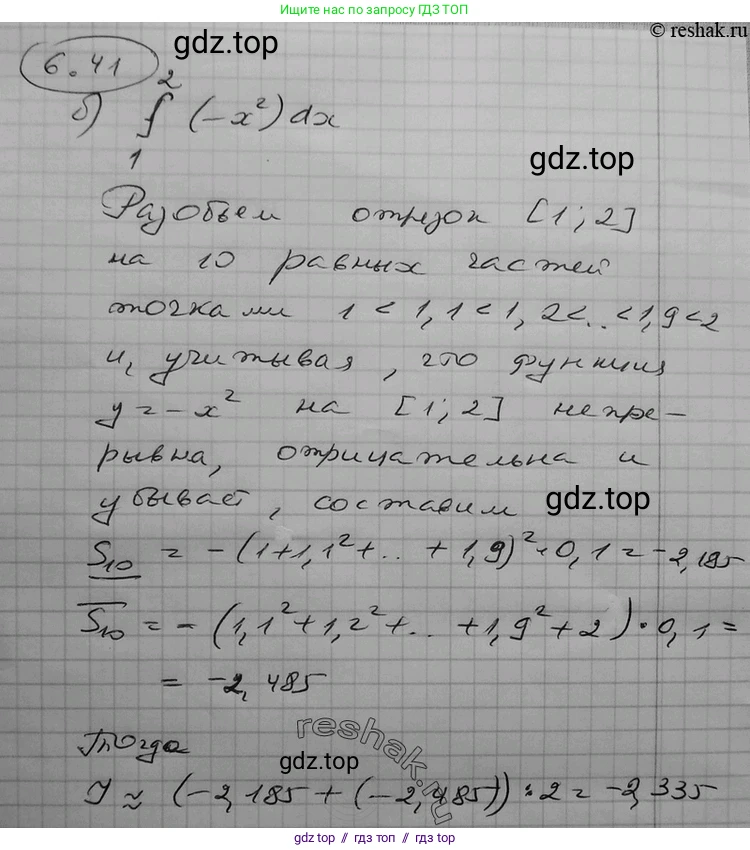 Ищите нас по запросу ГДЗ ТОП
© reshak.ru
gdz.top
6.41
б) ∫₁² (-x²) dx
gdz.top
Разобьем отрезок [1; 2]
на 10 равных частей
точками 1 < 1,1 < 1,2 <..< 1,9 < 2
и, учитывая, что функция
y = -x² на [1; 2] непре-
рывна, отрицательна и
убывает, составим
gdz.top
S₁₀ = -(1+1,1²+..+1,9)²·0,1 = -2,185
S₁₀ = -(1,1²+1,2²+..+1,9²+2)·0,1 =
= -2,485
reshak.ru
Тогда
gdz.top
J ≈ (-2,185+(-2,485)):2 = -2,335
gdz.top // гдз топ // gdz.top